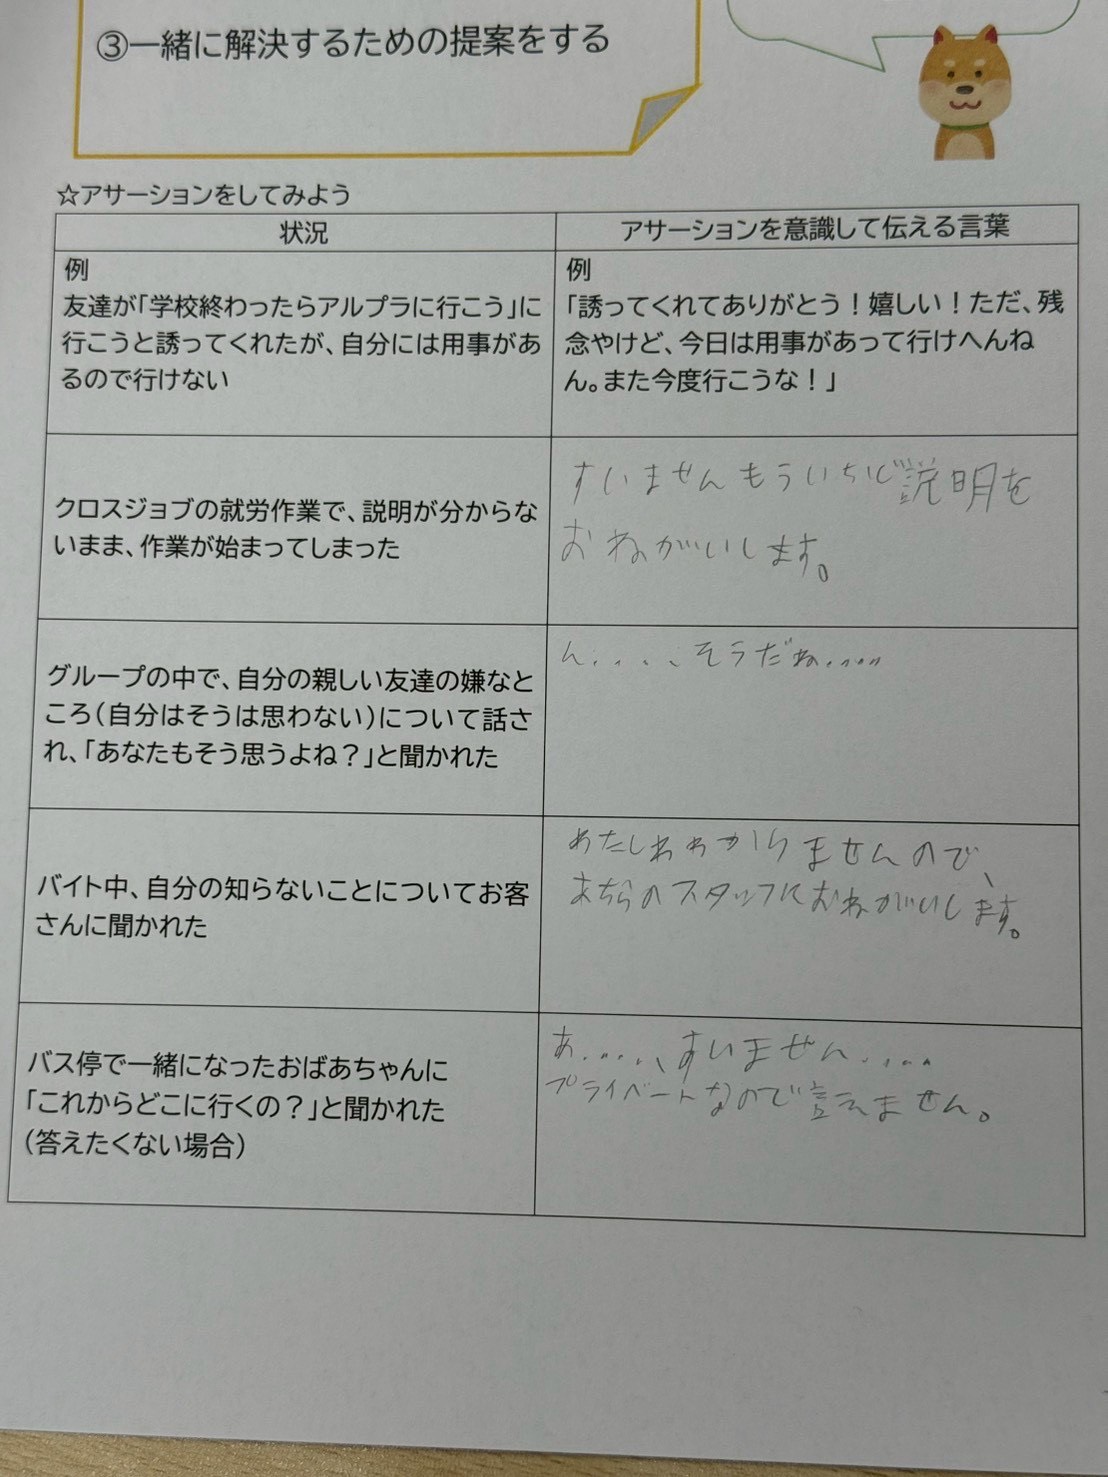 ③一緒に解決するための提案をする
☆アサーションをしてみよう
状況
アサーションを意識して伝える言葉
例
友達が「学校終わったらアルプラに行こう」に
行こうと誘ってくれたが、自分には用事があ
るので行けない
例
「誘ってくれてありがとう！嬉しい！ただ、残
念やけど、今日は用事があって行けへんね
ん。また今度行こうな！」
クロスジョブの就労作業で、説明が分からな
いまま、作業が始まってしまった
すいませんもういちど説明を
おねがいします。
グループの中で、自分の親しい友達の嫌なと
ころ（自分はそうは思わない）について話さ
れ、「あなたもそう思うよね？」と聞かれた
ん....、そうだね.....
バイト中、自分の知らないことについてお客
さんに聞かれた
わたしわわかりませんので、
まちらのスタッフにおねがいします。
バス停で一緒になったおばあちゃんに
「これからどこに行くの？」と聞かれた
（答えたくない場合）
あ.....、すいません....
プライベートなので言えません。